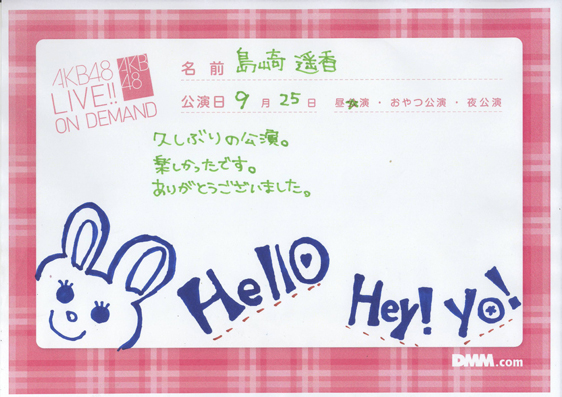 AKB48
LIVE!!
ON DEMAND
AKB
48
名前 島崎 遥香
公演日 9月25日 昼公演・おやつ公演・夜公演
久しぶりの公演。
楽しかったです。
ありがとうございました。
Hello
Hey! Yo!
DMM.com